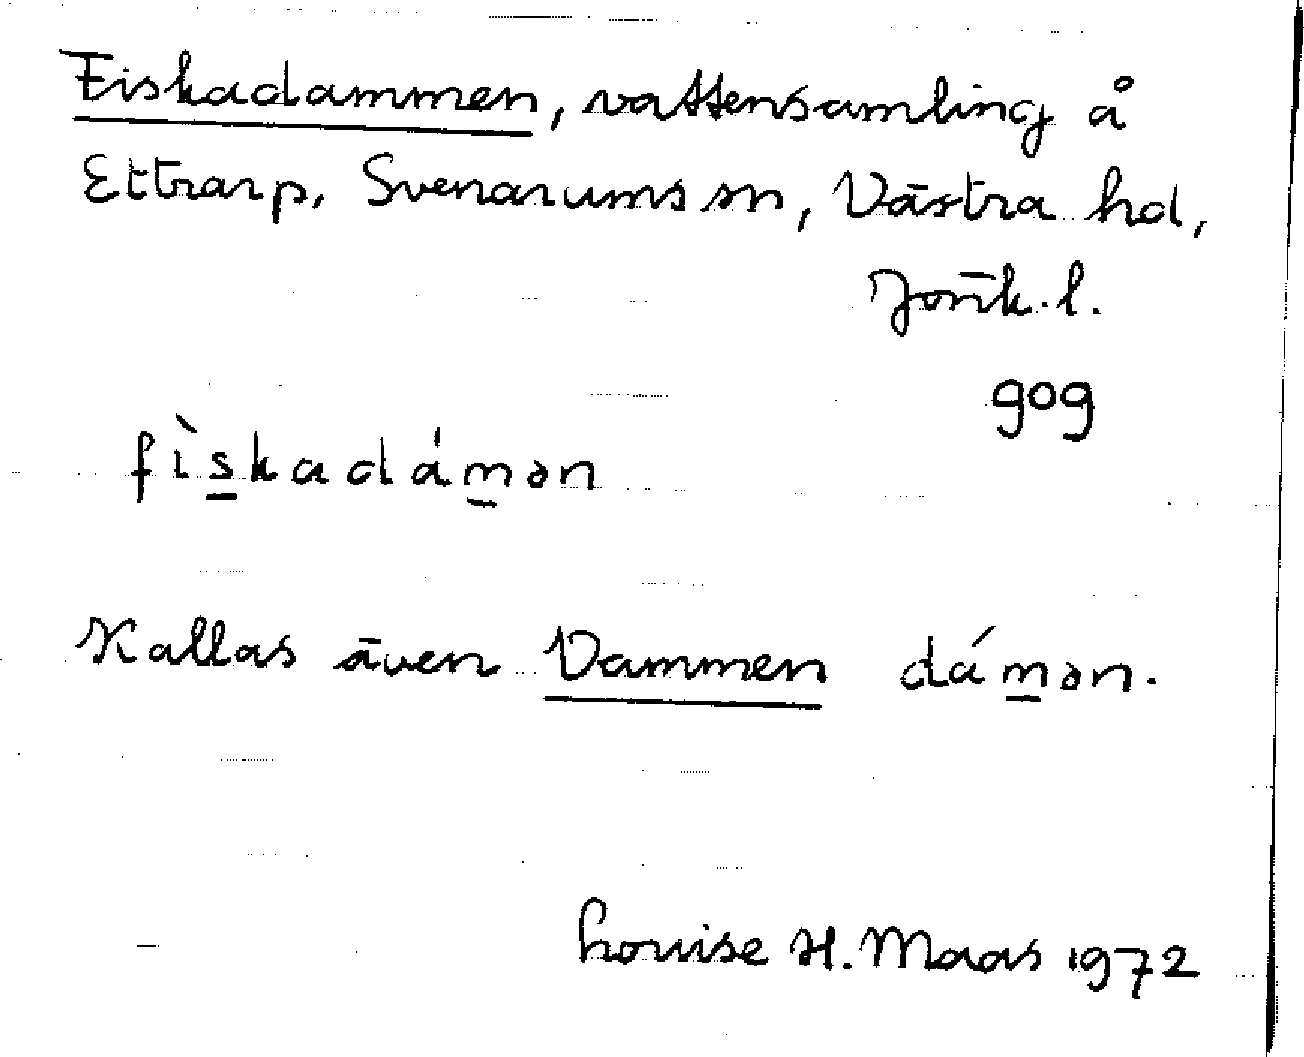 Fiskadammen, vattensamling å
Ettrarp, Svenarums sn, Västra hd,
Jönk. l.
gog
fìs̲kadám̲ən
Kallas även Dammen dám̲ən.
Louise H. Maas 1972